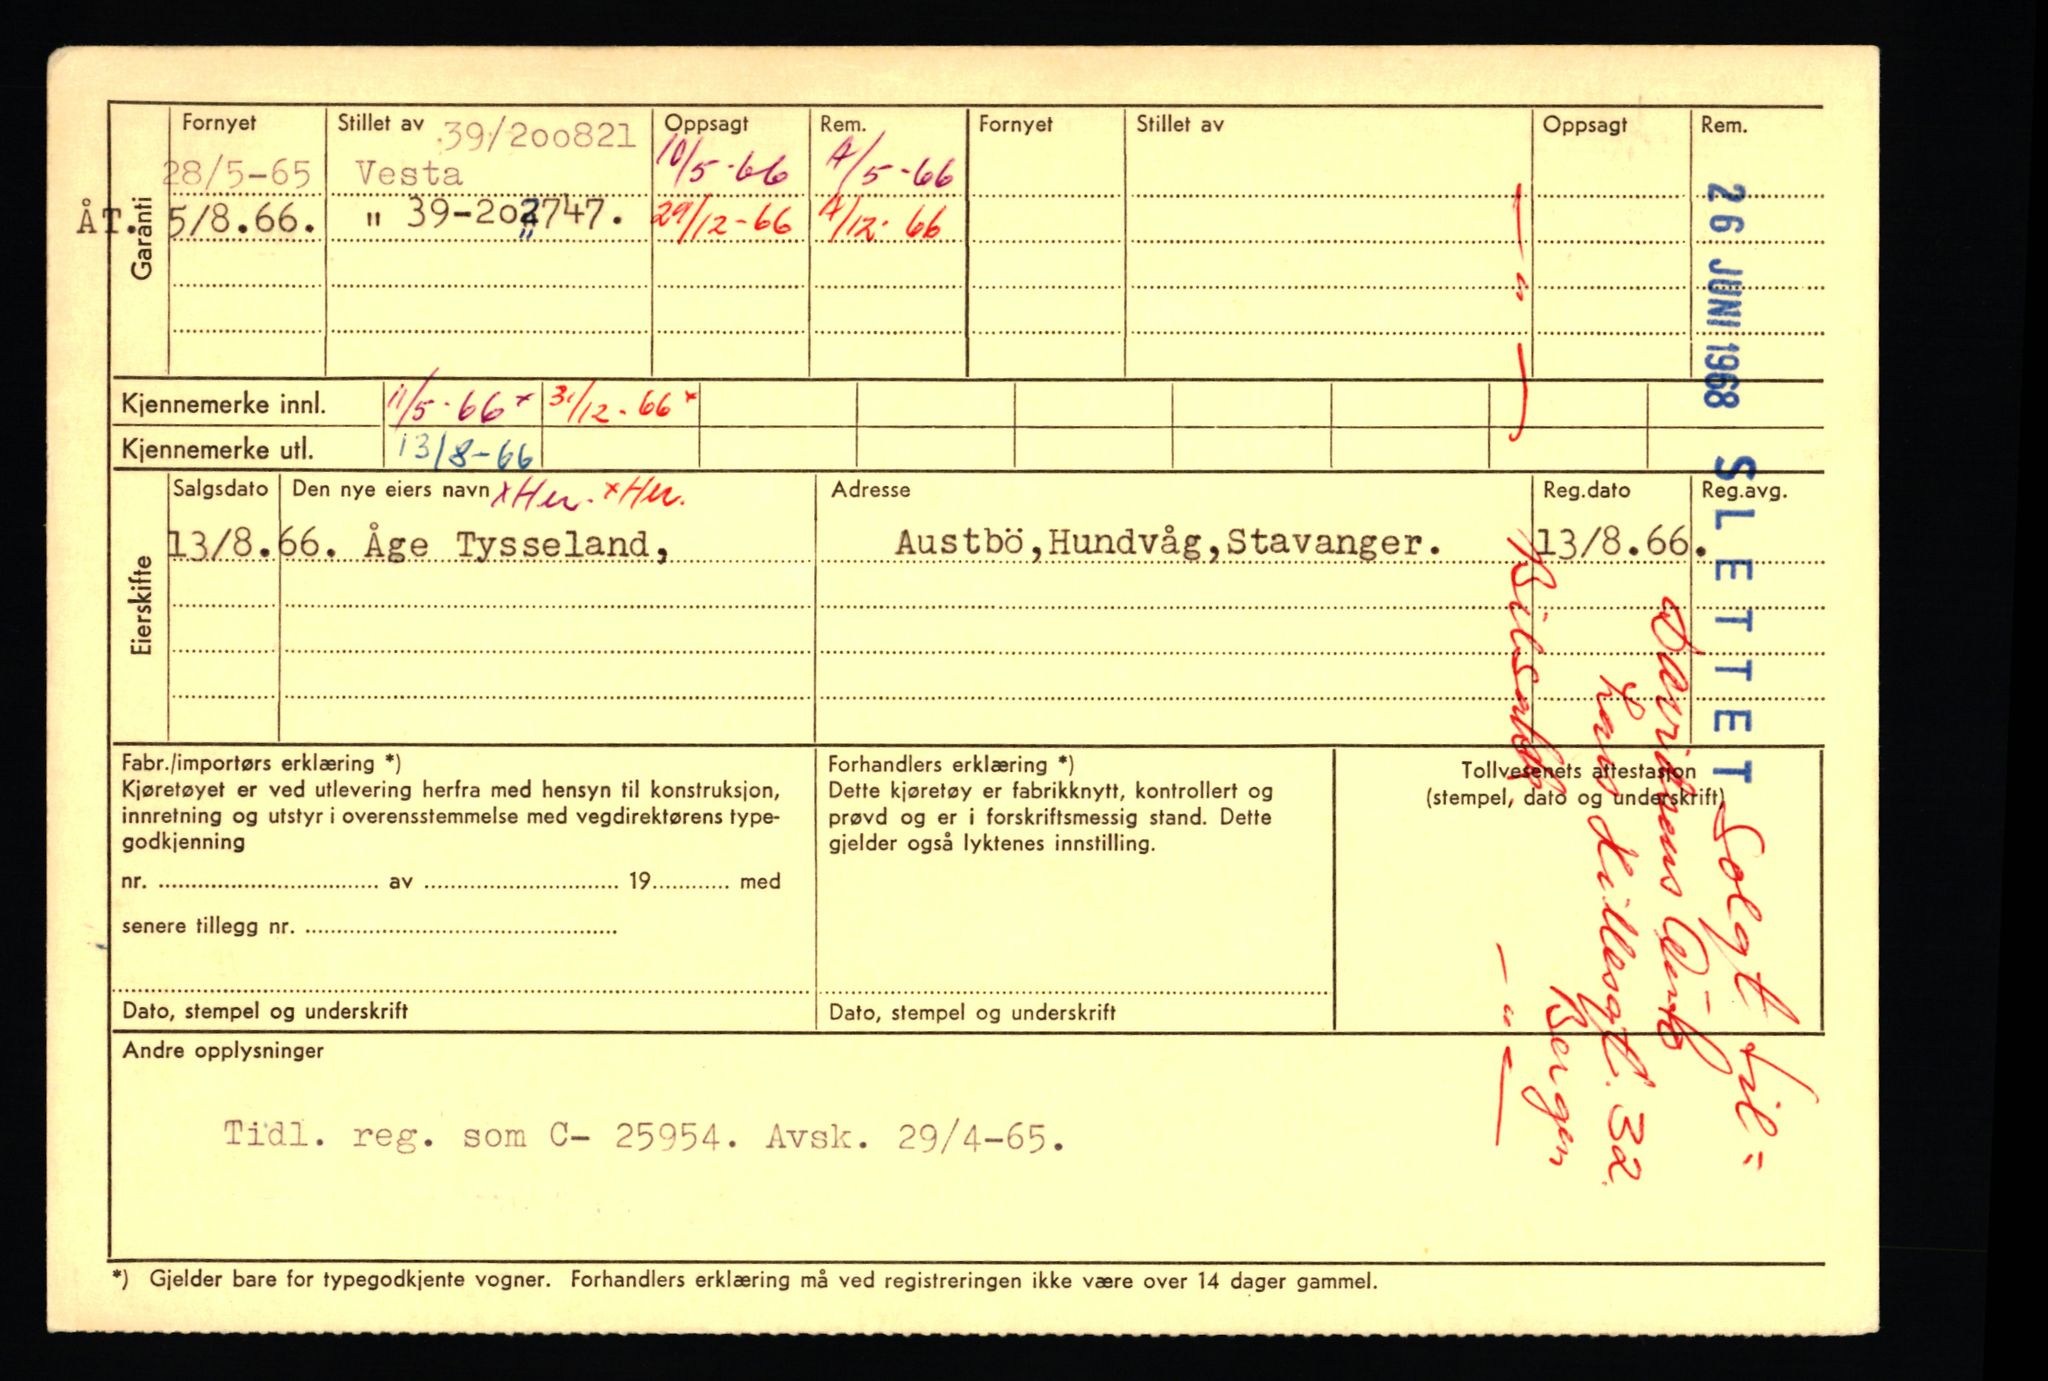 Garanti
Fornyet Stillet av 39/200821 Oppsagt Rem. Fornyet Stillet av Oppsagt Rem.
28/5-65 Vesta 10/5-66 /5-66
ÅT. 5/8.66. " 39-202747. 29/12-66 /12-66
Kjennemerke innl. 11/5-66 x 31/12-66 x
Kjennemerke utl. 13/8-66
Eierskifte
Salgsdato Den nye eiers navn x Her. x Her. Adresse Reg.dato Reg.avg.
13/8.66. Åge Tysseland, Austbö,Hundvåg,Stavanger. 13/8.66.
Fabr./importørs erklæring *)
Kjøretøyet er ved utlevering herfra med hensyn til konstruksjon,
innretning og utstyr i overensstemmelse med vegdirektørens type-
godkjenning
nr. av 19 med
senere tillegg nr.
Dato, stempel og underskrift
Forhandlers erklæring *)
Dette kjøretøy er fabrikknytt, kontrollert og
prøvd og er i forskriftsmessig stand. Dette
gjelder også lyktenes innstilling.
Dato, stempel og underskrift
Tollvesenets attestasjon
(stempel, dato og underskrift)
Andre opplysninger
Tidl. reg. som C- 25954. Avsk. 29/4-65.
*) Gjelder bare for typegodkjente vogner. Forhandlers erklæring må ved registreringen ikke være over 14 dager gammel.
26 JUNI 1968 SLETTET
Solgt til:
Lars Hillesgt. 32.
Bergen
— " —
— " —